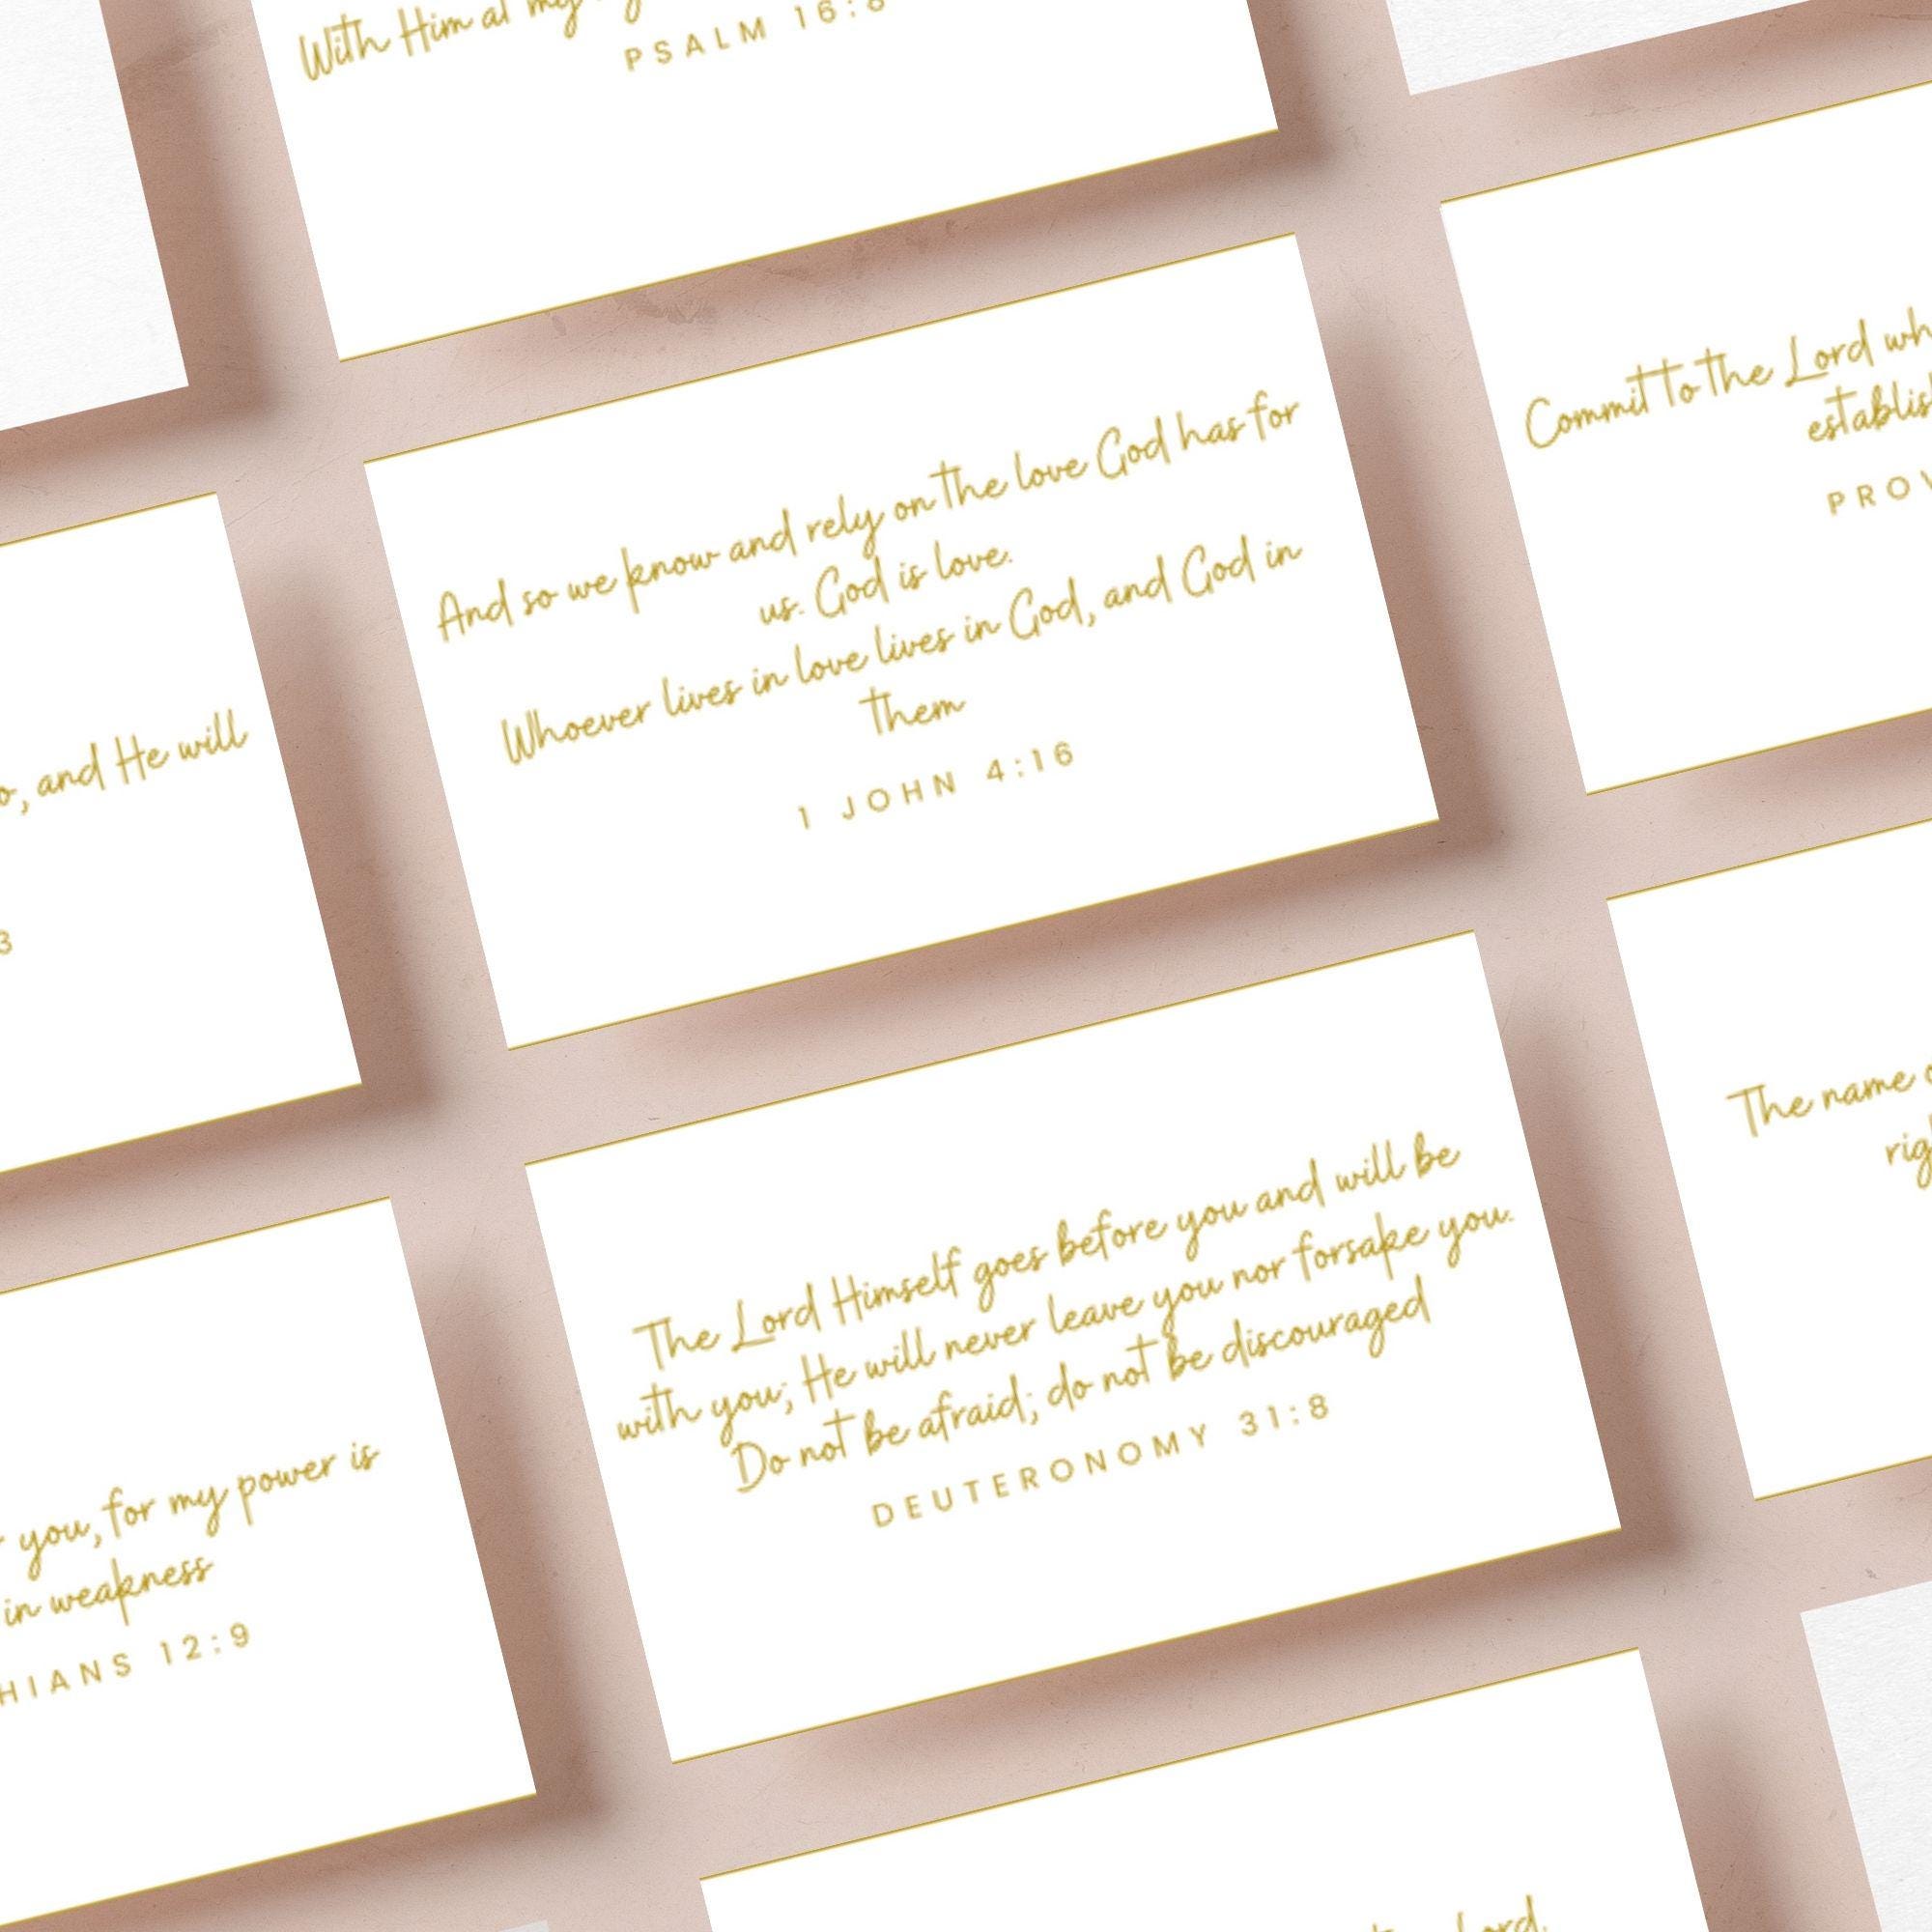 With Him at my
PSALM 16:8
And so we know and rely on the love God has for
us. God is love.
Whoever lives in love lives in God, and God in
them
1 JOHN 4:16
Commit to the Lord
PROV
, and He will
3
The Lord Himself goes before you and will be
with you; He will never leave you nor forsake you.
Do not be afraid; do not be discouraged
DEUTERONOMY 31:8
The name
you, for my power is
in weakness
HIANS 12:9
Lord,